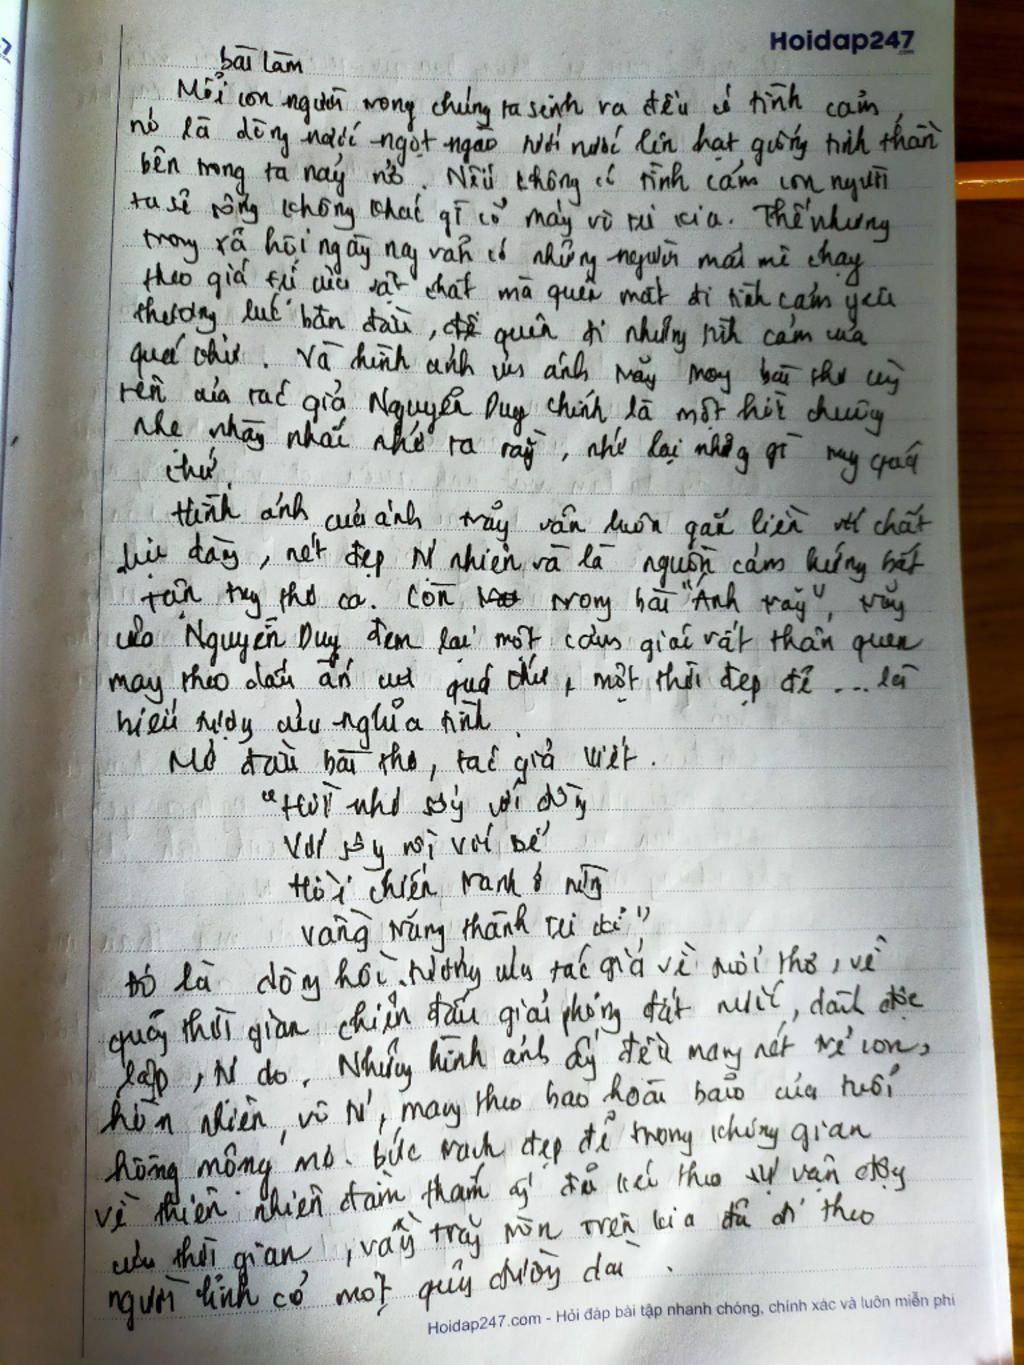 Hoidap247
.com
bài làm
Mỗi con người trong chúng ta sinh ra đều có tình cảm
nó là dòng nước ngọt ngào tưới nước lên hạt giống tinh thần
bên trong ta nảy nở. Nếu không có tình cảm con người
ta sẽ sống không khác gì cỗ máy vô tri kia. Thế nhưng
trong xã hội ngày nay vẫn có những người mải mê chạy
theo giá trị của vật chất mà quên mất đi tình cảm yêu
thương lúc ban đầu, để quên đi những tình cảm của
quá khứ. Và hình ảnh của ánh trăng trong bài thơ cùng
tên của tác giả Nguyễn Duy chính là một hồi chuông
nhẹ nhàng nhắc nhở ta rằng, nhớ lại những gì quá
khứ.
Hình ảnh của ánh trăng vẫn luôn gắn liền với chất
dịu dàng, nét đẹp tự nhiên và là nguồn cảm hứng bất
tận trong thơ ca. Còn trong bài "Ánh trăng", trăng
của Nguyễn Duy đem lại một cảm giác rất thân quen
mang theo dấu ấn của quá khứ, một thời đẹp đẽ ... là
biểu tượng của nghĩa tình
Mở đầu bài thơ, tác giả viết.
"Hồi nhỏ sống với đồng
Với sông rồi với bể
Hồi chiến tranh ở rừng
vầng trăng thành tri kỉ"
Đó là dòng hồi tưởng của tác giả về tuổi thơ, về
quãng thời gian chiến đấu giải phóng đất nước, dành độc
lập, tự do. Những hình ảnh ấy đều mang nét trẻ con,
hồn nhiên, vô tư, mang theo bao hoài bão của tuổi
hồng mộng mơ. bức tranh đẹp đẽ trong không gian
về thiên nhiên đằm thắm ấy đã kéo theo sự vận động
của thời gian, vầng trăng tròn trên kia đã đi theo
người lính cả một quãng đường dài.
Hoidap247.com - Hỏi đáp bài tập nhanh chóng, chính xác và luôn miễn phí